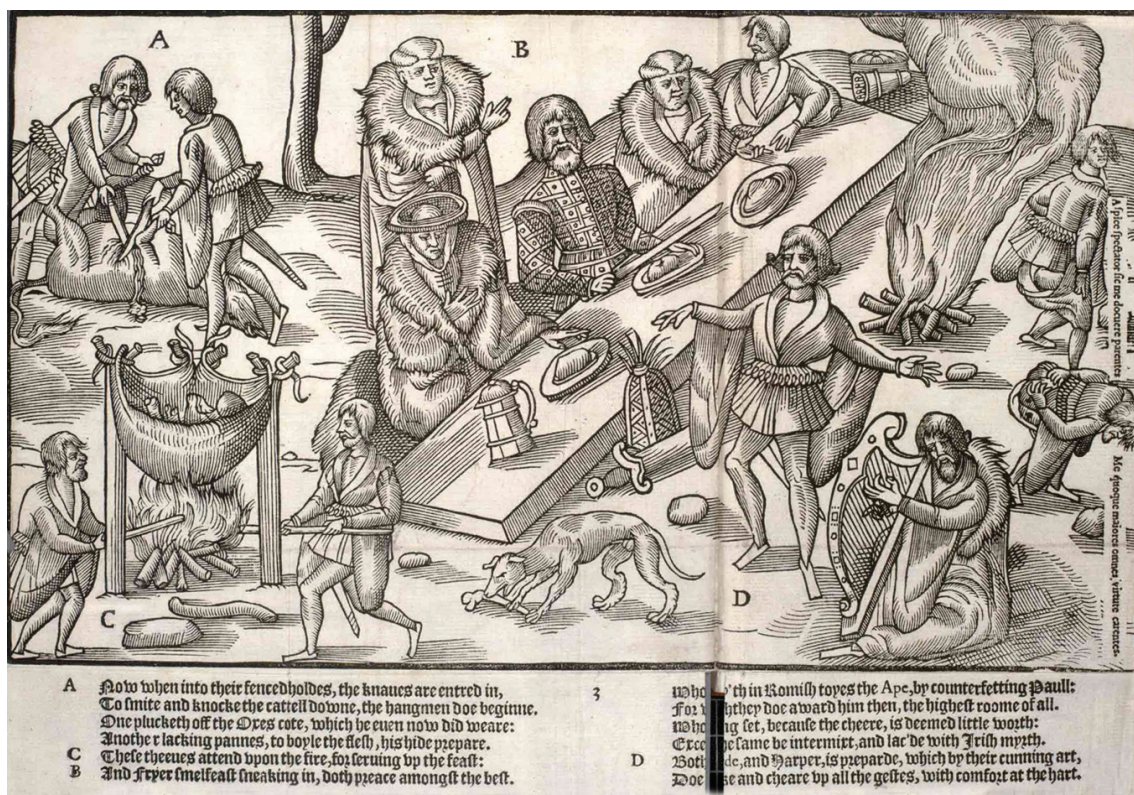 A
B
C
D
Aspice spectator sic me docuere parentes
Me quoque maiores omnes virtute carentes.
A Now when into their fencedholdes, the knaues are entred in,
To smite and knocke the cattell downe, the hangmen doe beginne.
One plucketh off the Oxes cote, which he euen now did weare:
Another lacking pannes, to boyle the flesh, his hide prepare.
C These theeues attend vpon the fire, for seruing vp the feast:
B And Fryer smelfeast sneaking in, doth preace amongst the best.
3
Who 'th in Romish toyes the Ape, by counterfetting Paull:
For they doe award him then, the highest roome of all.
Who set, because the cheere, is deemed little worth:
same be intermixt, and lac'de with Irish myrth.
D Both and Harper, is preparde, which by their cunning art,
Doe and cheare vp all the gestes, with comfort at the hart.